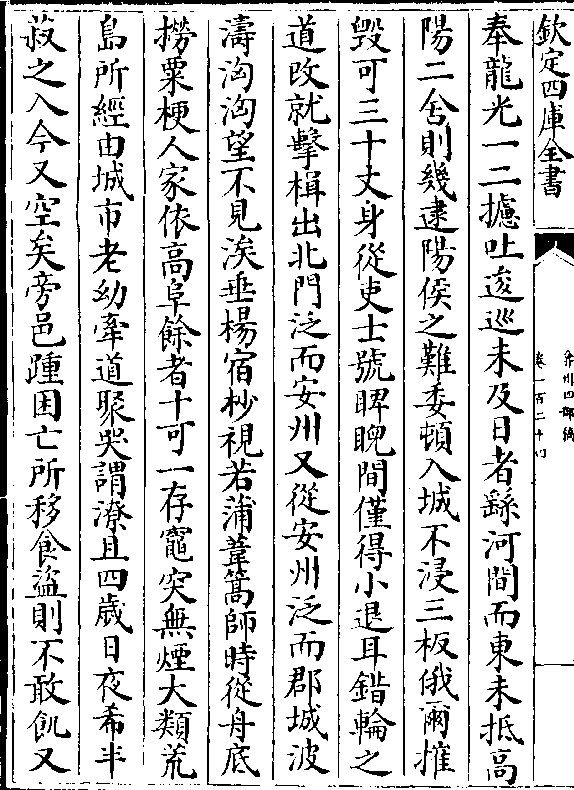 欽定四庫全書
弇州四部稿
卷一百二十四
奉龍光一二攄吐逡巡未及日者繇河間而東未抵高
陽二舍則幾逮陽侯之難委頓入城不浸三板俄爾摧
毁可三十丈身從吏士號睥睨間僅得小退耳錯輪之
道改就擊楫出北門泛而安州又從安州泛而郡城波
濤洶洶望不見涘垂楊宿杪視若蒲葦篙師時從舟底
撈粟梗人家依高阜餘者十可一存竈突無煙大類荒
島所經由城市老幼牽道聚哭謂潦且四歲日夜希半
菽之入今又空矣旁邑踵困亡所移食盜則不敢飢又